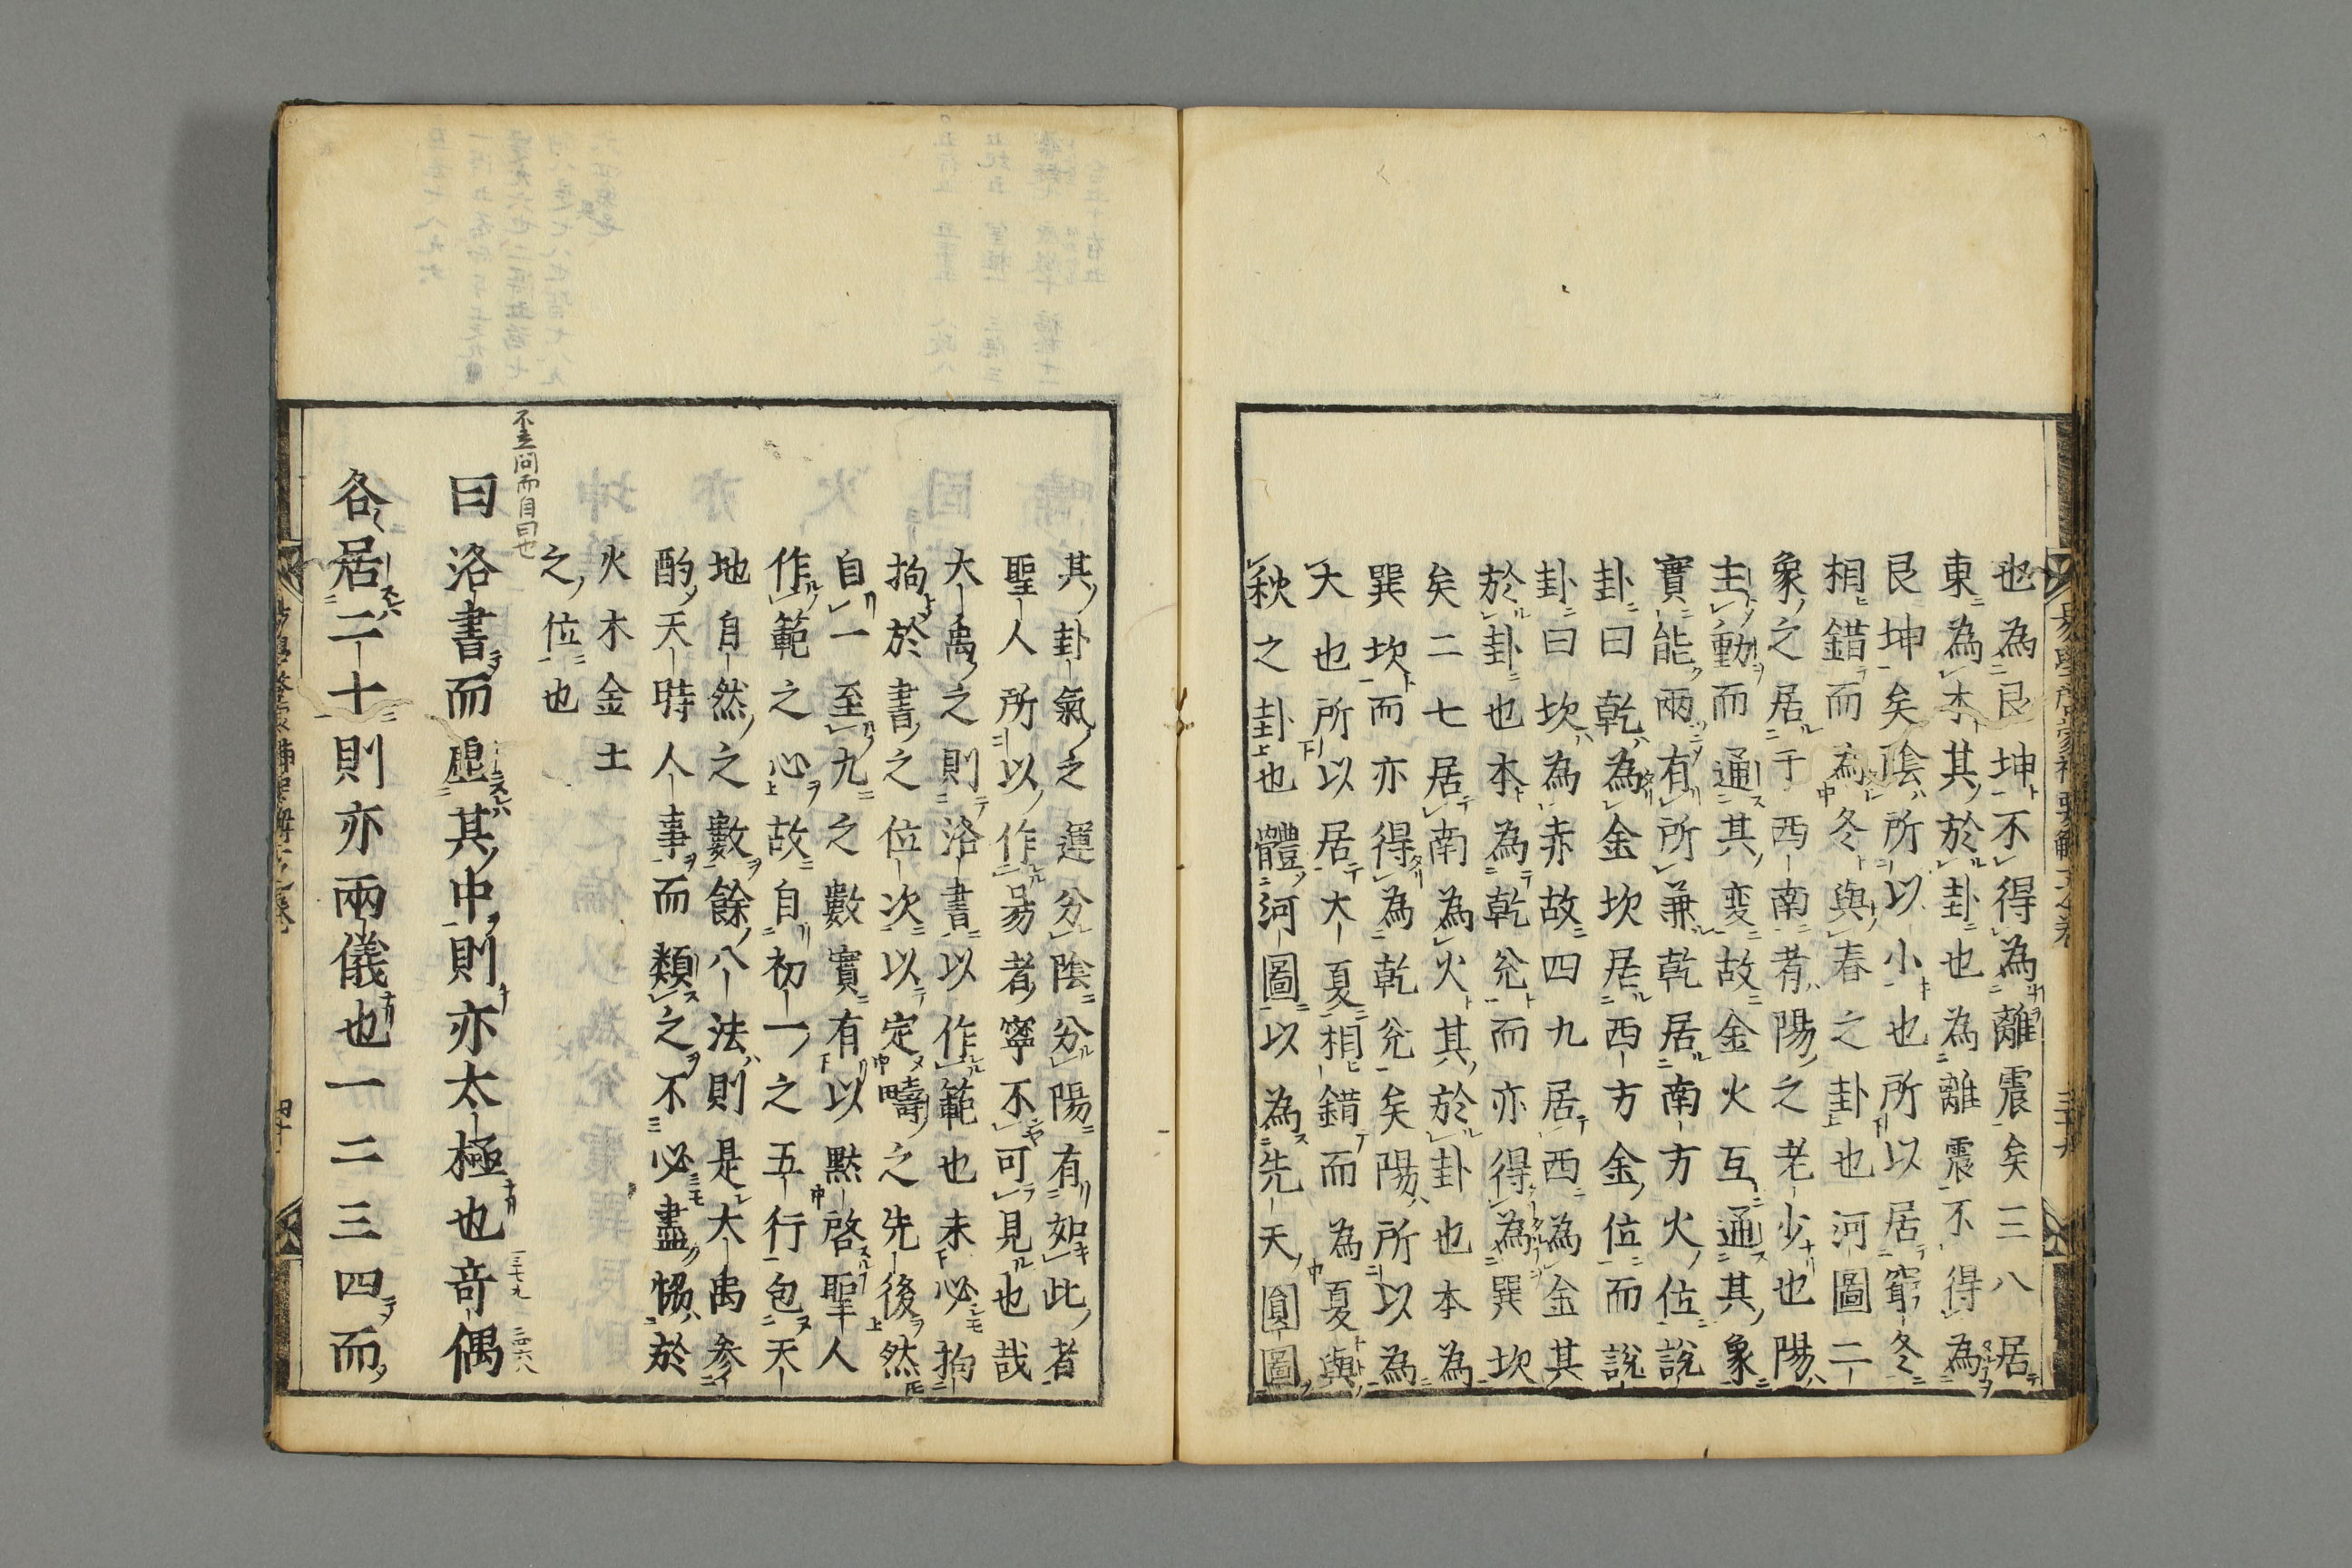 也為艮坤不得為離震矣三八居
東為木其於卦也為離震不得為
艮坤矣陰所以小也所以居窮冬
相錯而為冬與春之卦也河圖二
象之居于西南者陽之老少也陽
主動而通其変故金火互通其象
實能兩有所兼乾居南方火位說
卦曰乾為金坎居西方金位而說
卦曰坎為赤故四九居西為金其
於卦也本為乾兊而亦得為巽坎
矣二七居南為火其於卦也本為
巽坎而亦得為乾兊矣陽所以為
大也所以居大夏相錯而為夏與
秋之卦也體河圖以為先天圓圖
其卦氣之運分陰分陽有如此者
聖人所以作易者寧不可見也哉
大禹之則洛書以作範也未必拘
拘於書之位次以定疇之先後然
自一至九之數實有以黙啓聖人
作範之心故自初一之五行包天
地自然之數餘八法則是大禹参
酌天時人事而類之不必盡恊於
火木金土
之位也
不立問而自曰也
曰洛書而虛其中則亦太極也竒偶
各居二十則亦兩儀也一二三四而